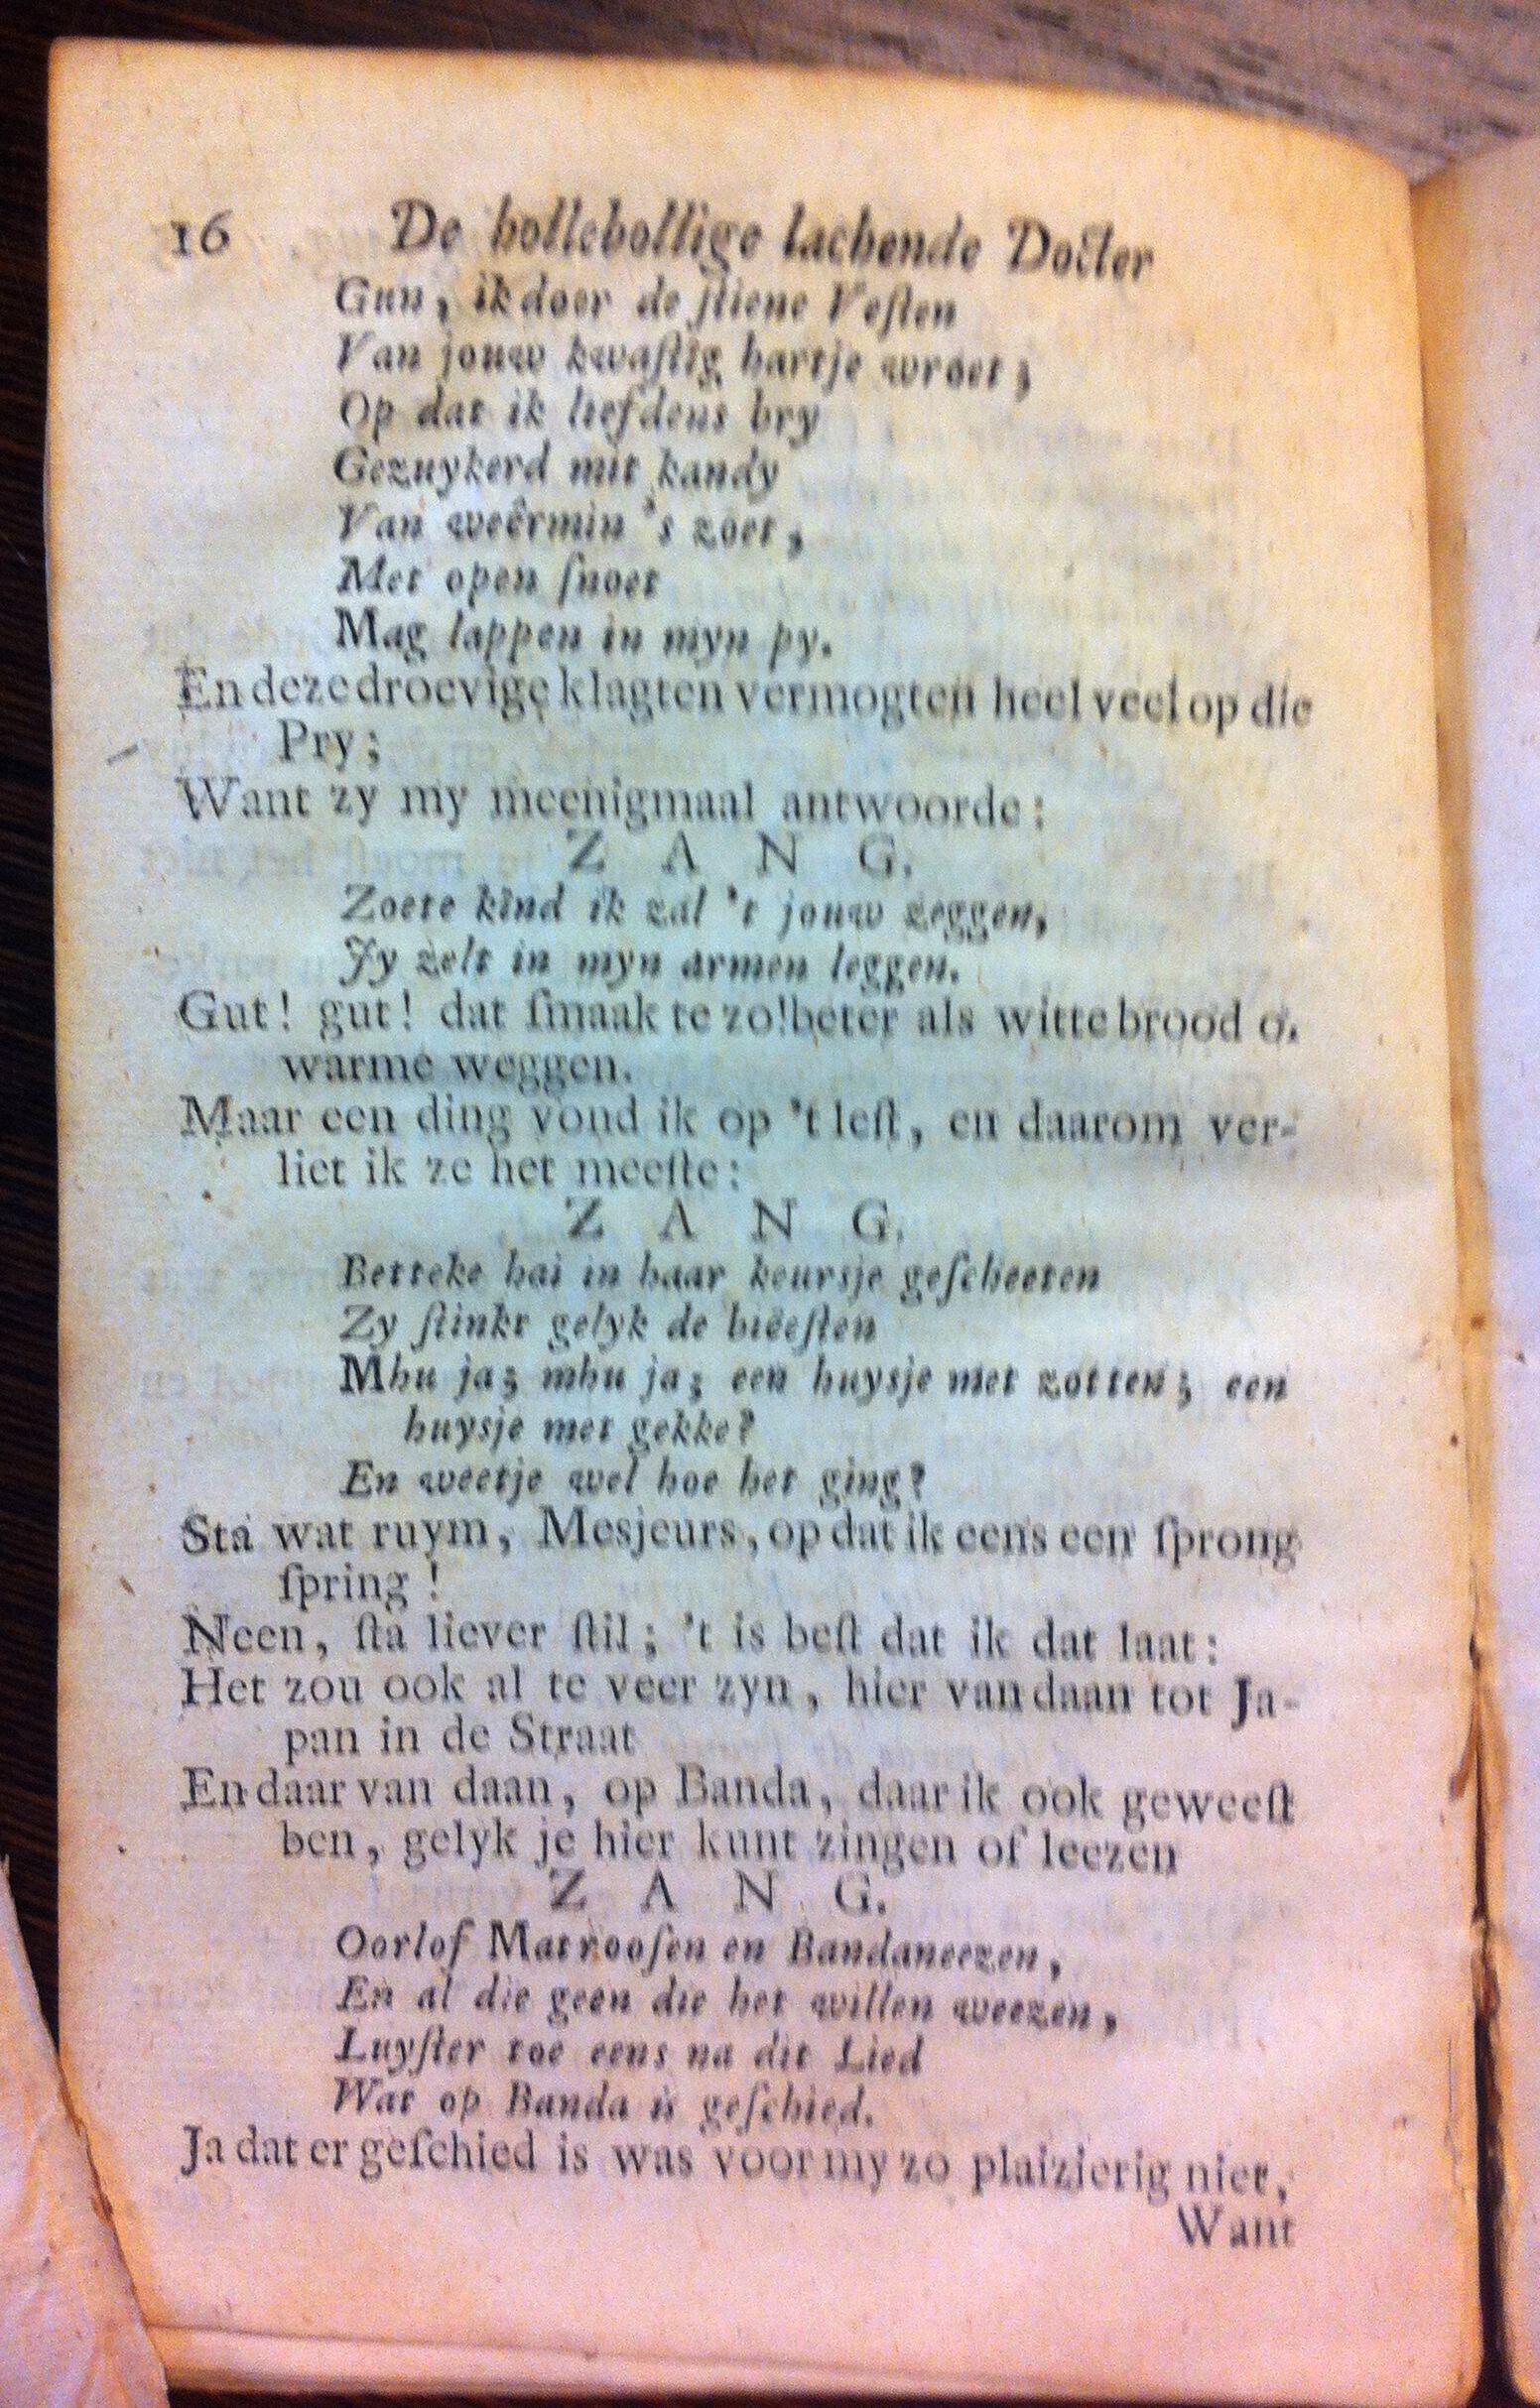 16 De hollebollige lachende Docter
Gun, ik doer de ſtiene Veſten
Van jouw kwaſtig hartje wroet;
Op dat ik liefdens bry
Gezuykerd mit kandy
Van weêrmin 's zoet,
Met open ſnoet
Mag lappen in myn py.
En deze droevige klagten vermogten heel veel op die
Pry;
Want zy my meenigmaal antwoorde:
Z A N G.
Zoete kind ik zal 't jouw zeggen,
Jy zelt in myn armen leggen.
Gut! gut! dat ſmaakte zo! beter als witte brood o.
warme weggen.
Maar een ding vond ik op 't leſt, en daarom ver-
liet ik ze het meeſte:
Z A N G.
Betteke hai in haar keursje geſcheeten
Zy ſtinkt gelyk de bieeſten
Mhu ja; mhu ja; een huysje met zotten; een
huysje met gekke?
En weetje wel hoe het ging?
Sta wat ruym, Mesjeurs, op dat ik eens een ſprong
ſpring!
Neen, ſta liever ſtil; 't is beſt dat ik dat laat:
Het zou ook al te veer zyn, hier van daan tot Ja-
pan in de Straat
En daar van daan, op Banda, daar ik ook geweeſt
ben, gelyk je hier kunt zingen of leezen
Z A N G.
Oorlof Matrooſen en Bandaneezen,
En al die geen die het willen weezen,
Luyſter toe eens na dit Lied
Wat op Banda is geſchied.
Ja dat er geſchied is was voor my zo plaizierig niet,
Want